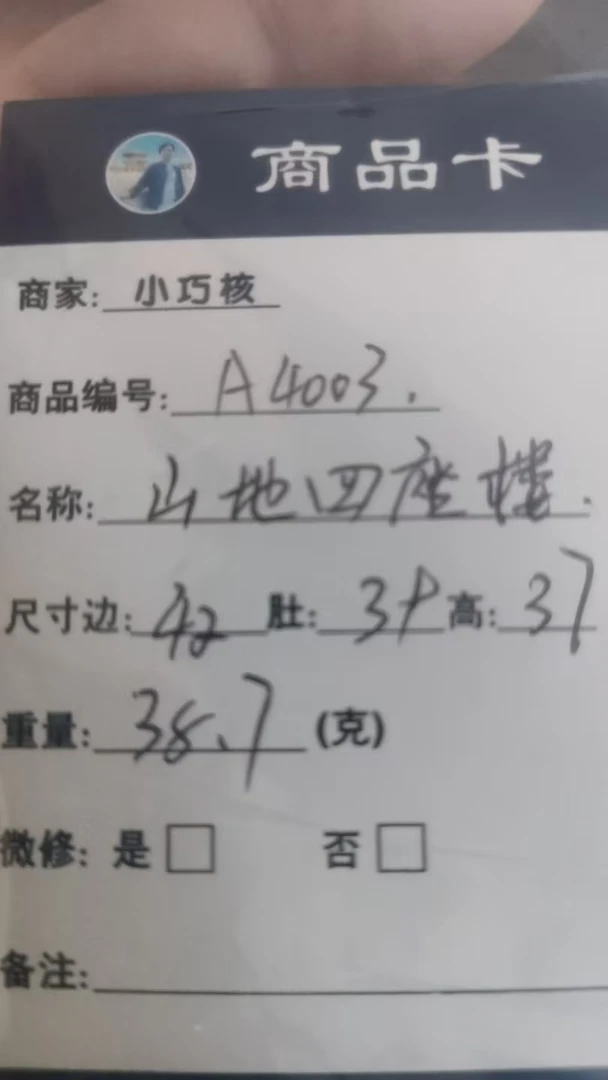 商品卡
商家: 小巧核
商品编号: A4003.
名称: 山地四座楼.
尺寸边: 42 肚: 高: 37
重量: 38.7 (克)
微修: 是 否
备注: